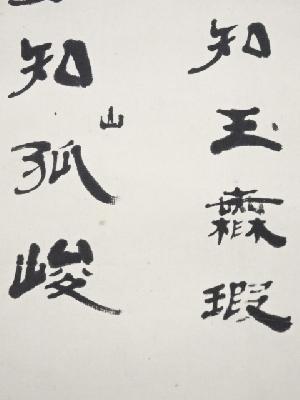 知玉橆瑕
知山孤峻